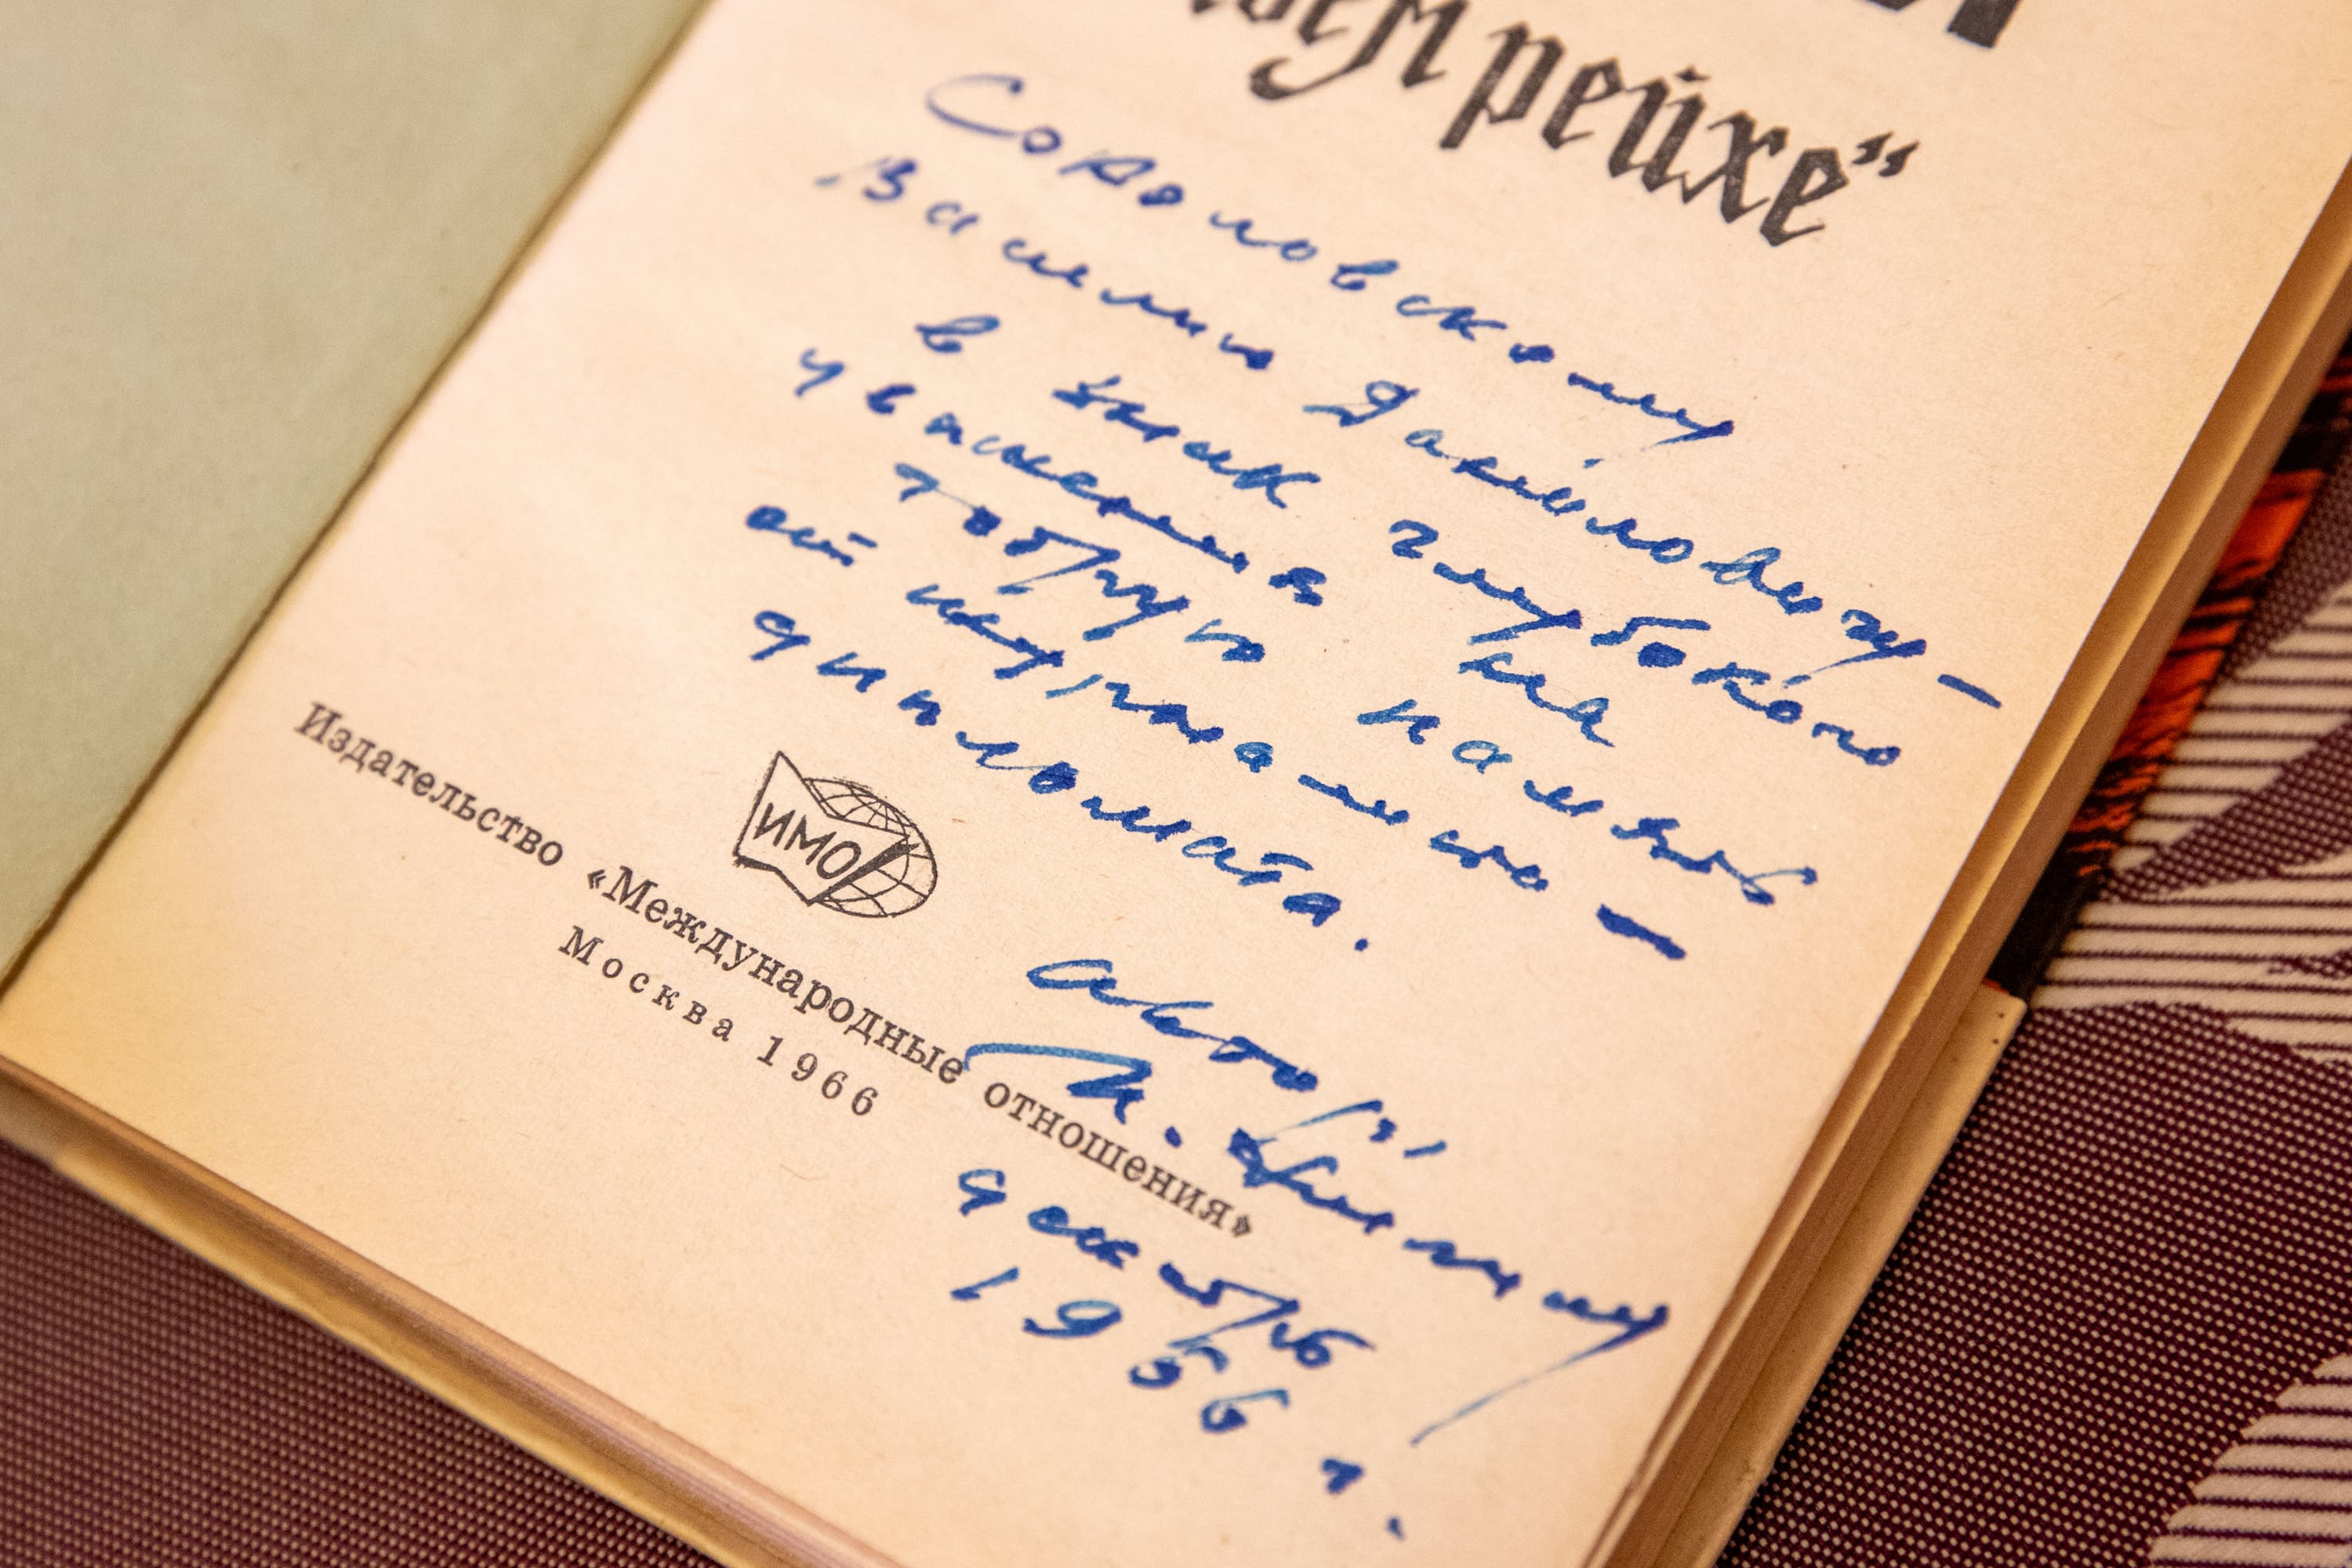 рейхе“
Соколовскому
Василию Даниловичу –
в знак глубокого
уважения на
добрую память
от журналиста –
дипломата.
Автор:
И. Филиппов
декабрь
1966 г.
ИМО
Издательство «Международные отношения»
Москва 1966